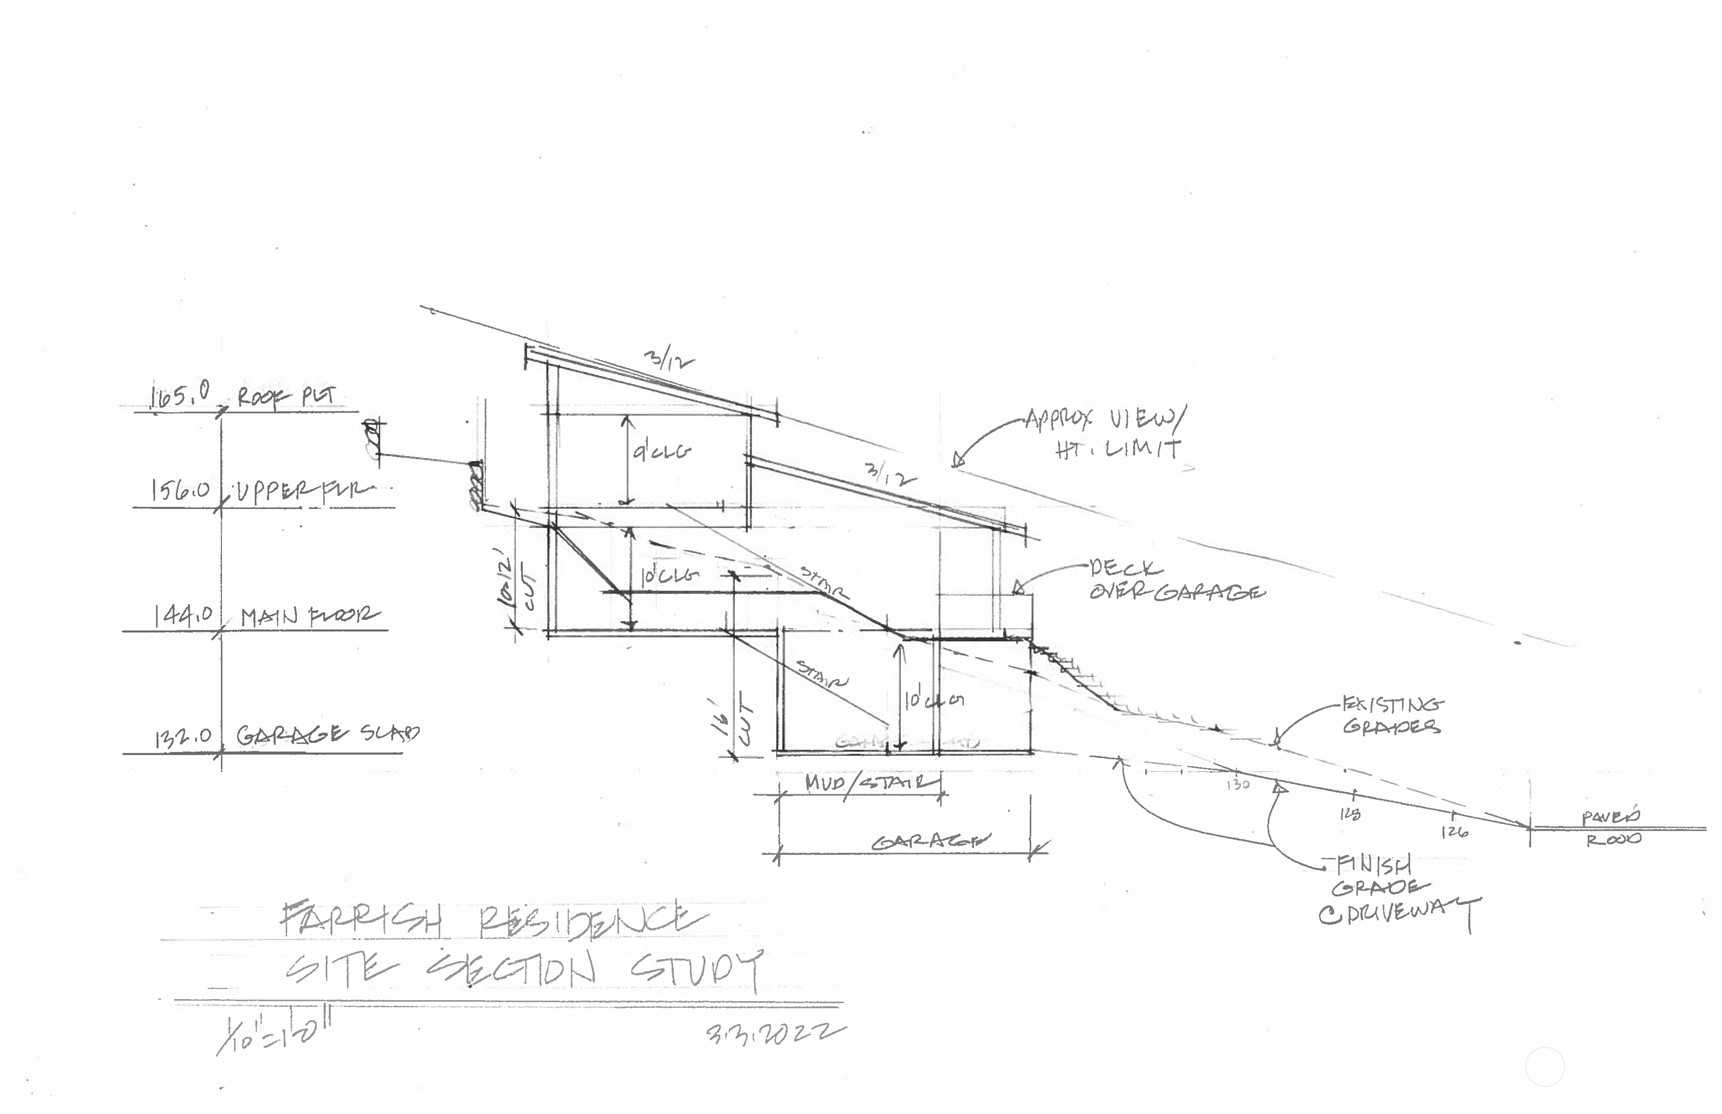 3/12
165.0 ROOF PLT
APPROX VIEW/
HT. LIMIT
9' CLG
3/12
156.0 UPPER FLR.
10-12'
CUT
10' CLG
STAIR
DECK
OVER GARAGE
144.0 MAIN FLOOR
STAIR
16'
CUT
10' CLG
EXISTING
GRADES
132.0 GARAGE SLAB
MUD/STAIR
130
128
126
PAVED
ROAD
GARAGE
FINISH
GRADE
@ DRIVEWAY
FARRISH RESIDENCE
SITE SECTION STUDY
1/10"=1'-0"
3.3.2022